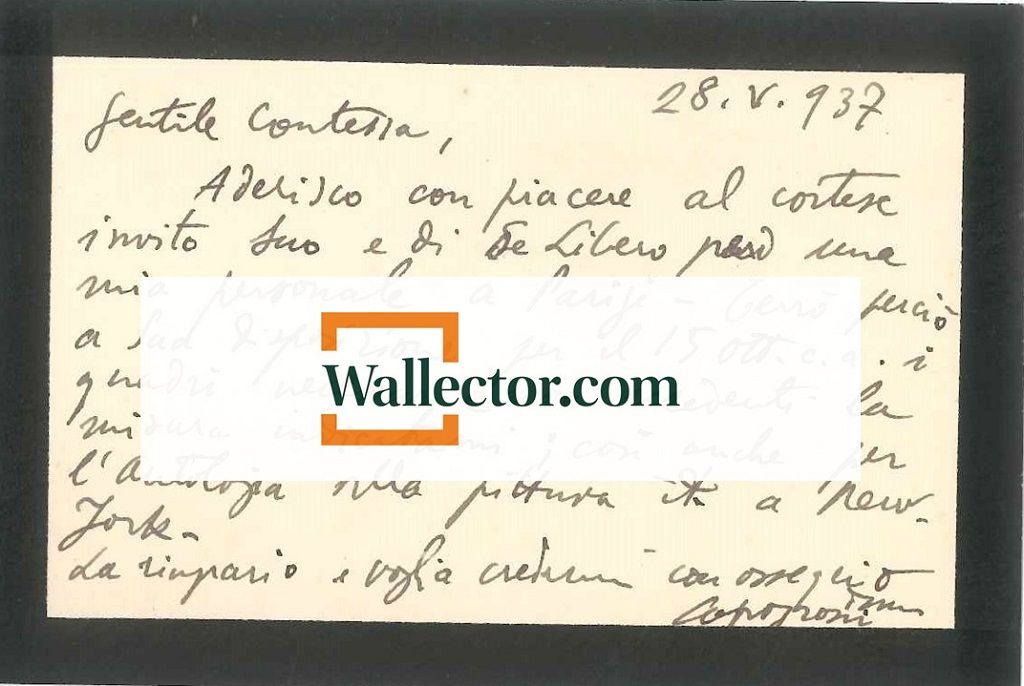 28.V.937
Gentile Contessa,
Aderisco con piacere al cortese
invito Suo e di De Libero per una
mia personale a Parigi - Terrò perciò
a Sua disposizione per il 15 ott. c.a. i
quadri la
misura indicatami; così anche per
l'Antologia della pittura it. a New-
York-
La ringrazio e voglia credermi con ossequio
Capogrossi
Wallector.com